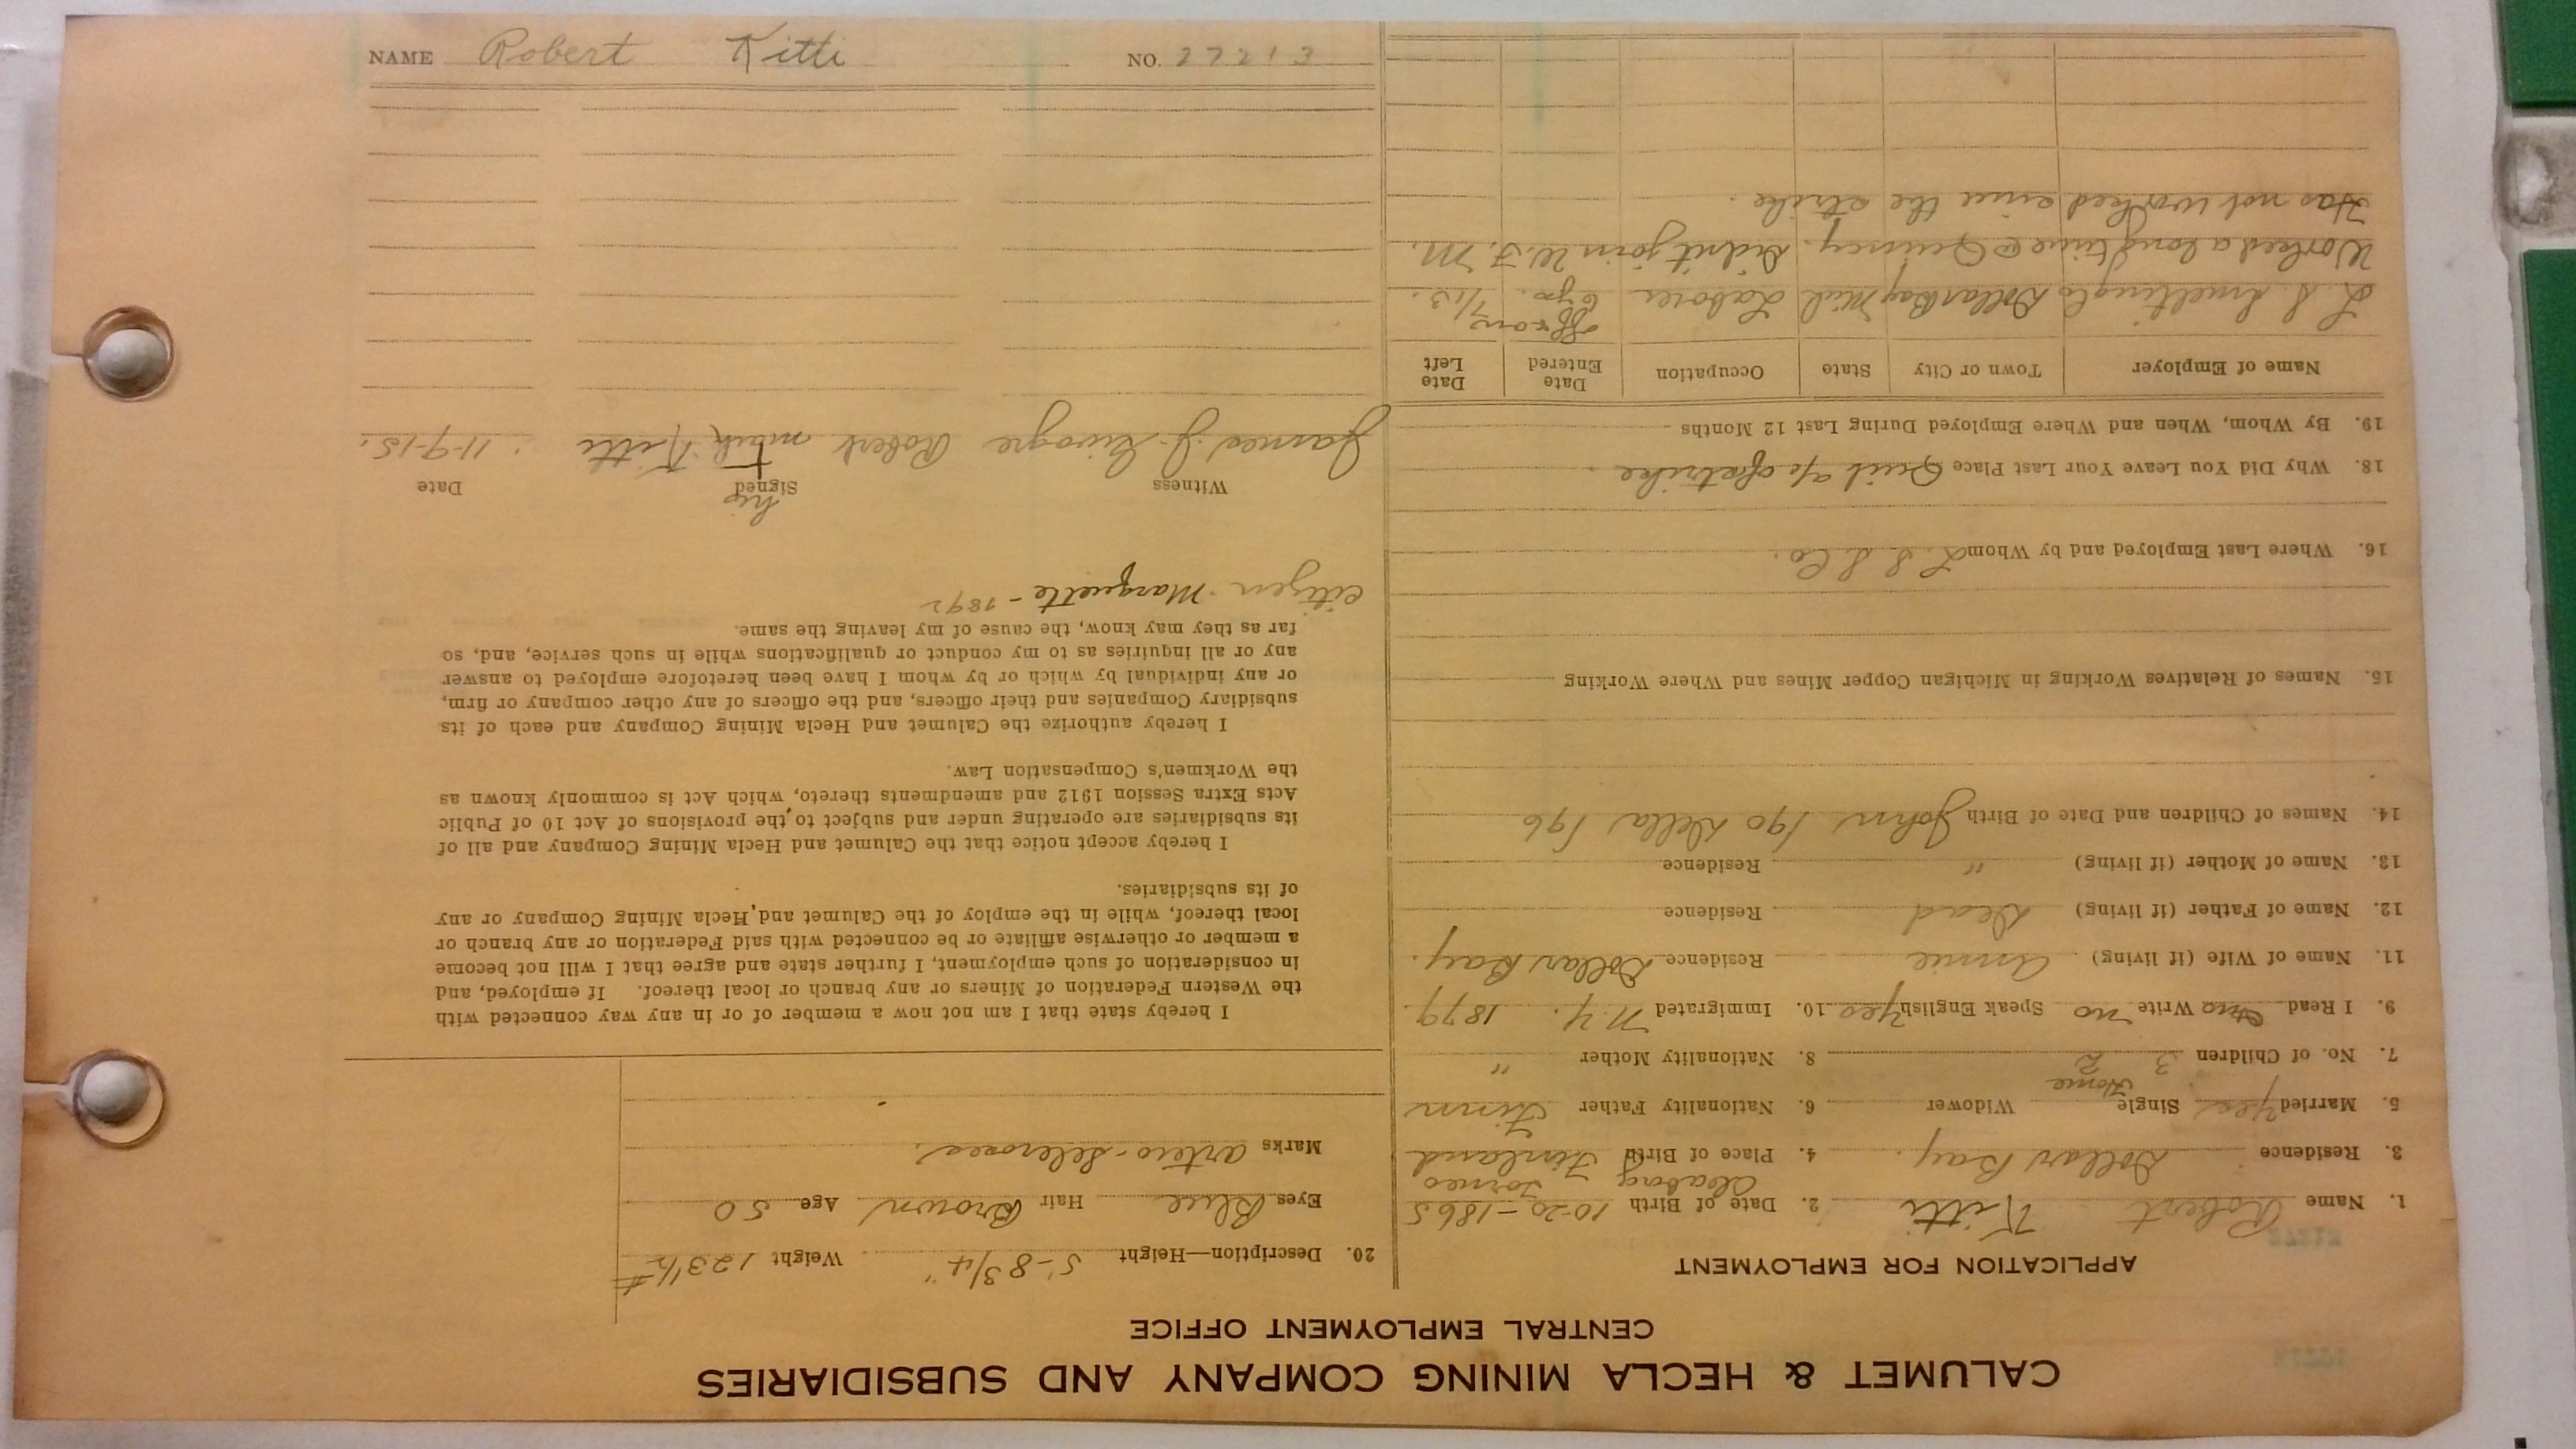 CALUMET & HECLA MINING COMPANY AND SUBSIDIARIES
CENTRAL EMPLOYMENT OFFICE
APPLICATION FOR EMPLOYMENT
1. Name Robert Kitti 2. Date of Birth 10-20-1865
Torneo
3. Residence Dollar Bay. 4. Place of Birth Finland
5. Married Yes Single Widower 6. Nationality Father Finn
Home
7. No. of Children 3 2 8. Nationality Mother "
9. I Read no Write no Speak English Yes 10. Immigrated N.Y. 1879
11. Name of Wife (if living) Annie Residence Dollar Bay.
12. Name of Father (if living) Dead Residence
13. Name of Mother (if living) " Residence
14. Names of Children and Date of Birth John 190 Della 196
15. Names of Relatives Working in Michigan Copper Mines and Where Working
16. Where Last Employed and by Whom L. S. S. Co.
18. Why Did You Leave Your Last Place Quit a/c of strike
19. By Whom, When and Where Employed During Last 12 Months
Name of Employer Town or City State Occupation Date Entered Date Left
off & on
L. S. Smelting Co Dollar Bay Mich Laborer 6 yrs. 7/13.
Worked a long time @ Quincy. Didn't join W. F. M.
Has not worked since the strike.
20. Description—Height 5'-8 3/4" Weight 123 1/2 #
Eyes Blue Hair Brown Age 50
Marks Arterio-Scleroses.
I hereby state that I am not now a member of or in any way connected with
the Western Federation of Miners or any branch or local thereof. If employed, and
in consideration of such employment, I further state and agree that I will not become
a member or otherwise affiliate or be connected with said Federation or any branch or
local thereof, while in the employ of the Calumet and Hecla Mining Company or any
of its subsidiaries.
I hereby accept notice that the Calumet and Hecla Mining Company and all of
its subsidiaries are operating under and subject to the provisions of Act 10 of Public
Acts Extra Session 1912 and amendments thereto, which Act is commonly known as
the Workmen's Compensation Law.
I hereby authorize the Calumet and Hecla Mining Company and each of its
subsidiary Companies and their officers, and the officers of any other company or firm,
or any individual by which or by whom I have been heretofore employed to answer
any or all inquiries as to my conduct or qualifications while in such service, and, so
far as they may know, the cause of my leaving the same.
Citizen Marquette - 1892
his
Witness Signed Date
James J. Robert mark Kitti 11-9-15.
NAME Robert Kitti NO. 27213